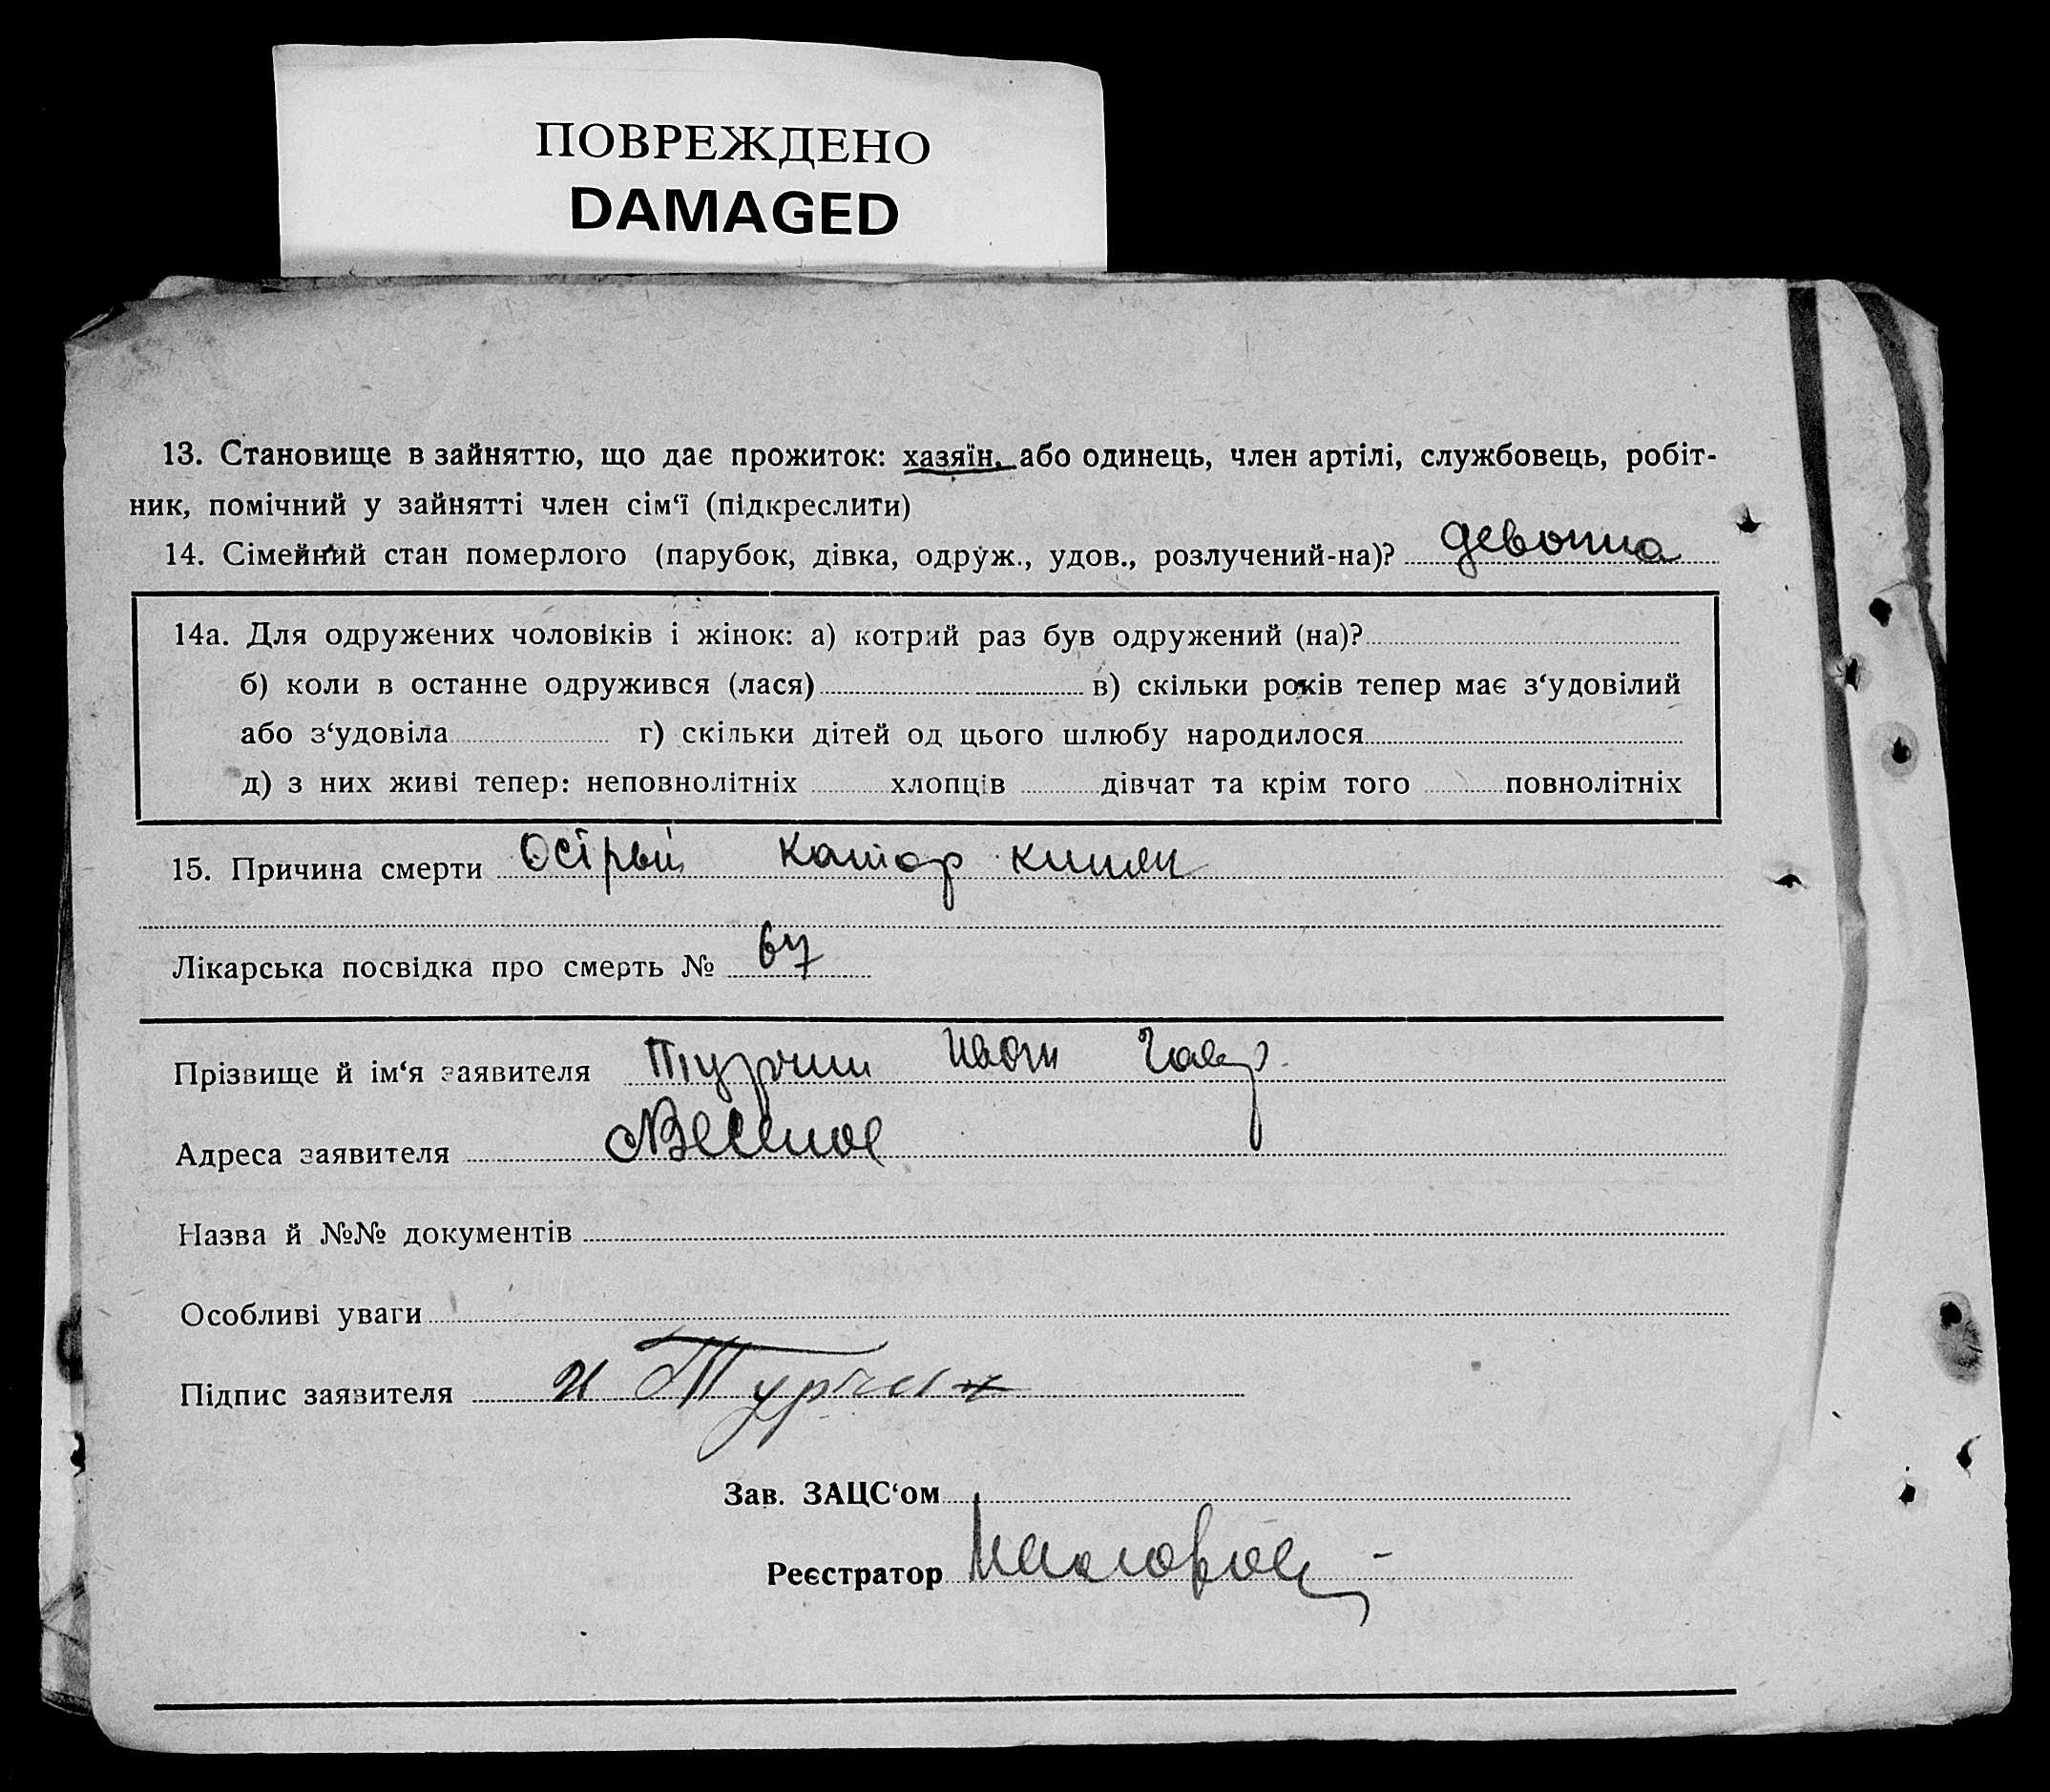 ПОВРЕЖДЕНО
DAMAGED
13. Становище в зайняттю, що дає прожиток: хазяїн, або одинець, член артілі, службовець, робіт-
ник, помічний у зайнятті член сім‘ї (підкреслити)
14. Сімейний стан померлого (парубок, дівка, одруж., удов., розлучений-на)?
14а. Для одружених чоловіків і жінок: а) котрий раз був одружений (на)?
б) коли в останне одружився (лася) в) скільки років тепер має з‘удовілий
або з‘удовіла г) скільки дітей од цього шлюбу народилося
д) з них живі тепер: неповнолітніх хлопців дівчат та крім того повнолітніх
15. Причина смерти Острый катар кишек
Лікарська посвідка про смерть № 67
Прізвище й ім‘я заявителя Турчин Иван Гавр.
Адреса заявителя
Назва й №№ документів
Особливі уваги
Підпис заявителя И Турчин
Зав. ЗАЦС‘ом
Реєстратор